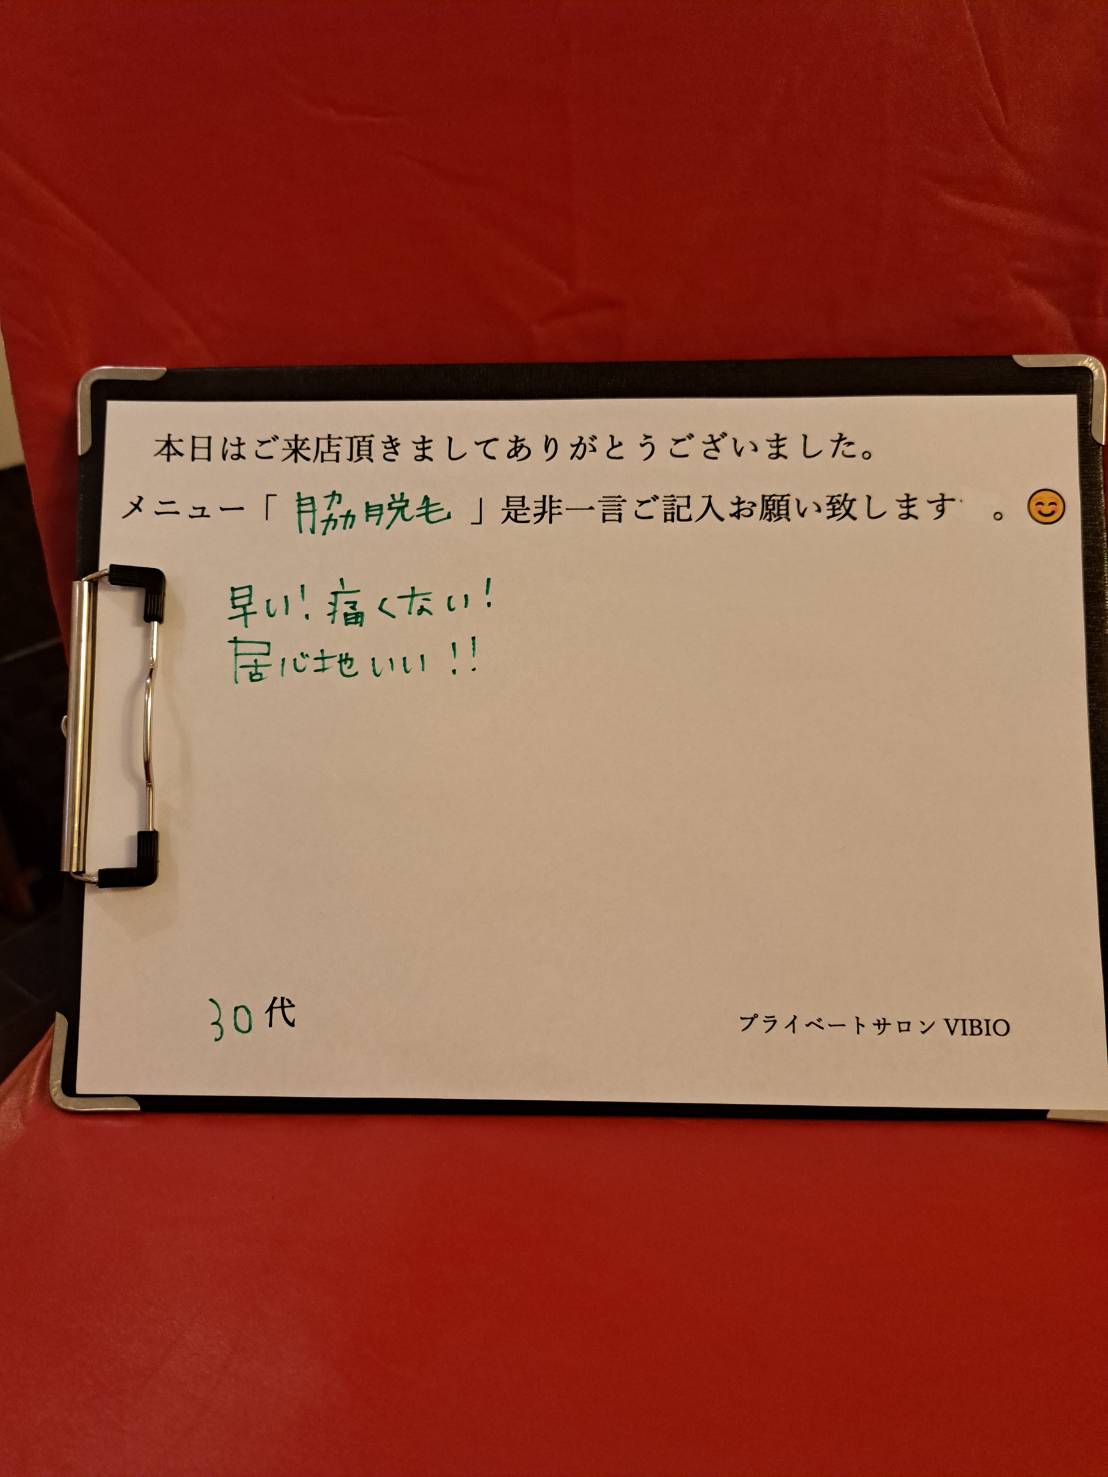 本日はご来店頂きましてありがとうございました。
メニュー「 脇脱毛 」是非一言ご記入お願い致します 。😊
早い!痛くない!
居心地いい!!
30代
プライベートサロン VIBIO